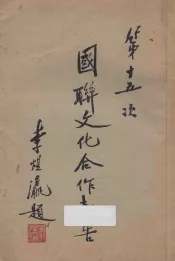 第十五次
國聯文化合作
告
李煜瀛題